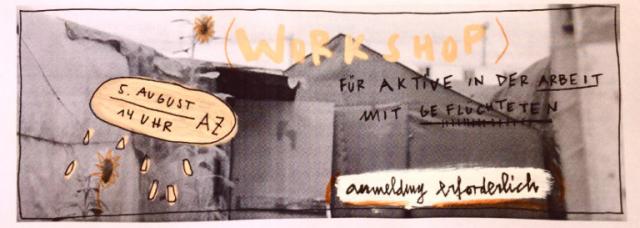 (WORKSHOP)
FÜR AKTIVE IN DER ARBEIT
MIT GEFLÜCHTETEN
5. AUGUST
14 UHR AZ
anmeldung erforderlich